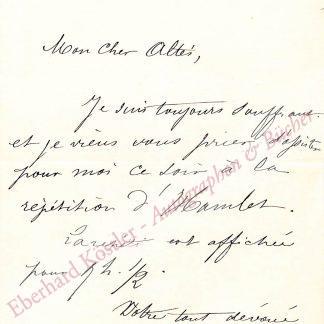 Mon cher Altès,
Je suis toujours souffrant
et je viens vous prier d'assister
pour moi ce soir à la
répétition d'Hamlet.
est affichée
pour 7h. 1/2
Votre tout dévoué
Eberhard Köstler - Autographen & Bücher